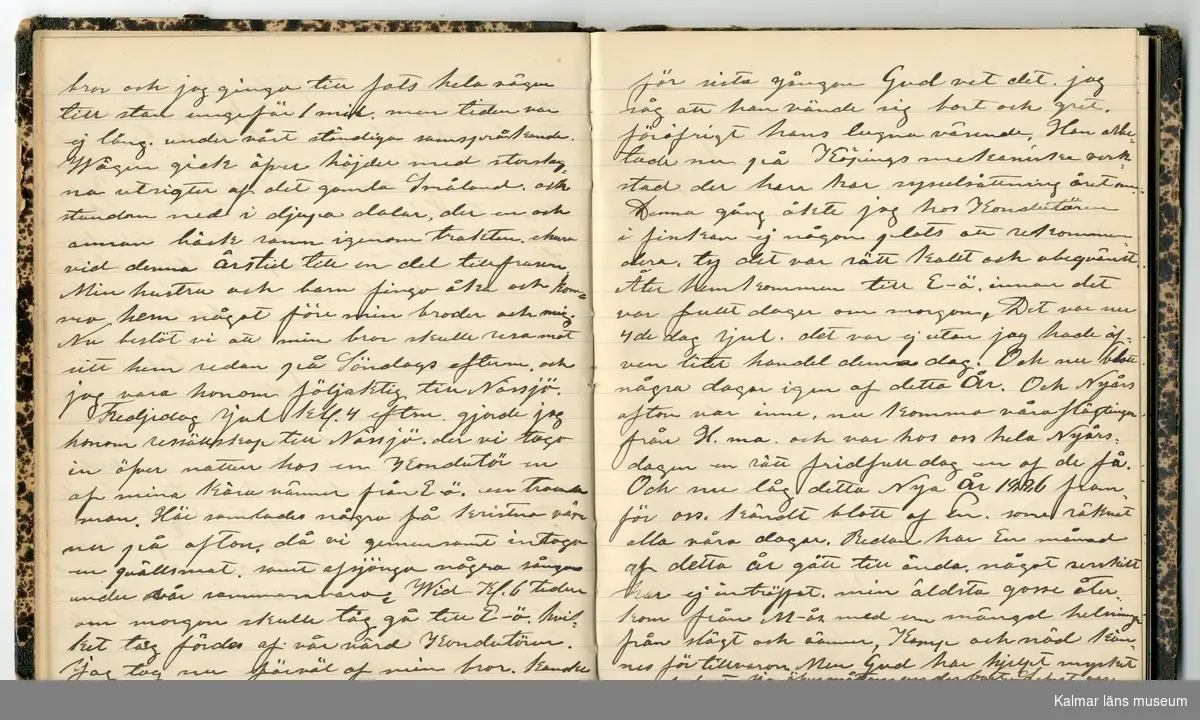 bror och jag gingo till fots hela vägen
till stan ungefär 1 mil. men tiden var
ej lång. under vårt ständiga samspråkande.
Wägen gick öfver höjder med storslag=
na utsigter af det gamla Småland. och
stundom ned i djupa dalar, der en och
annan bäck rann igenom trakten.
vid denna Årstid till en del tillfrusen.
Min hustru och barn fingo åka och kom=
mo hem något före min broder och mig.
Nu beslöt vi att min bror skulle resa mot
sitt hem redan på Söndags efterm. och
jag vara honom följaktig till Nässjö.
Tredjedag Jul Kl. 4 efterm. gjorde jag
honom ressällskap till Nässjö. der vi togo
in öfver natten hos en Konduktör en
af mina kära vänner från E-ö. en troende
man. Här samlades några få kristna vän
ner på afton. då vi gemensamt intogo
en qvällsmat. samt afsjöngo några sånger
under vår sammanvaro. Wid Kl. 6 tiden
om morgon skulle tåg gå till E-ö. hvil=
ket tåg fördes af vår värd Konduktören.
Jag tog nu farväl af min bror. kanske
för sista gången Gud vet det. jag
såg att han vände sig bort och gret.
föröfrigt hans lugna väsende, Han arbe=
tade nu på Köpings mekaniska verk=
stad der han har sysselsättning året om.
Denna gång åkte jag hos Konduktören
i finkan ej någon plats att rekommen
dera. ty det var rätt kallt och obeqvämt.
Åter hemkommen till E-ö. innan det
var fullt dager om morgon, Det var nu
4de dag jul. det var ej utan jag hade äf=
ven litet handel denna dag. Och nu blott
några dagar igen af detta År. Och Nyårs
afton var inne, nu kommo våra slägtingar
från H. ma. och var hos oss hela Nyårs=
dagen en rätt fridfull dag en af de få.
Och nu låg detta Nya År 1886 fram
för oss. kändt blott af En. som räknat
alla våra dagar. Redan har En månad
af detta år gått till ända. något serskilt
har ej inträffat. min äldsta gosse åter
kom från M-ås med en mängd helsningar
från slägt och vänner, Kamp och nöd kän
nes för tillvaron. Men Gud har hjelpt mycket
Kalmar läns museum